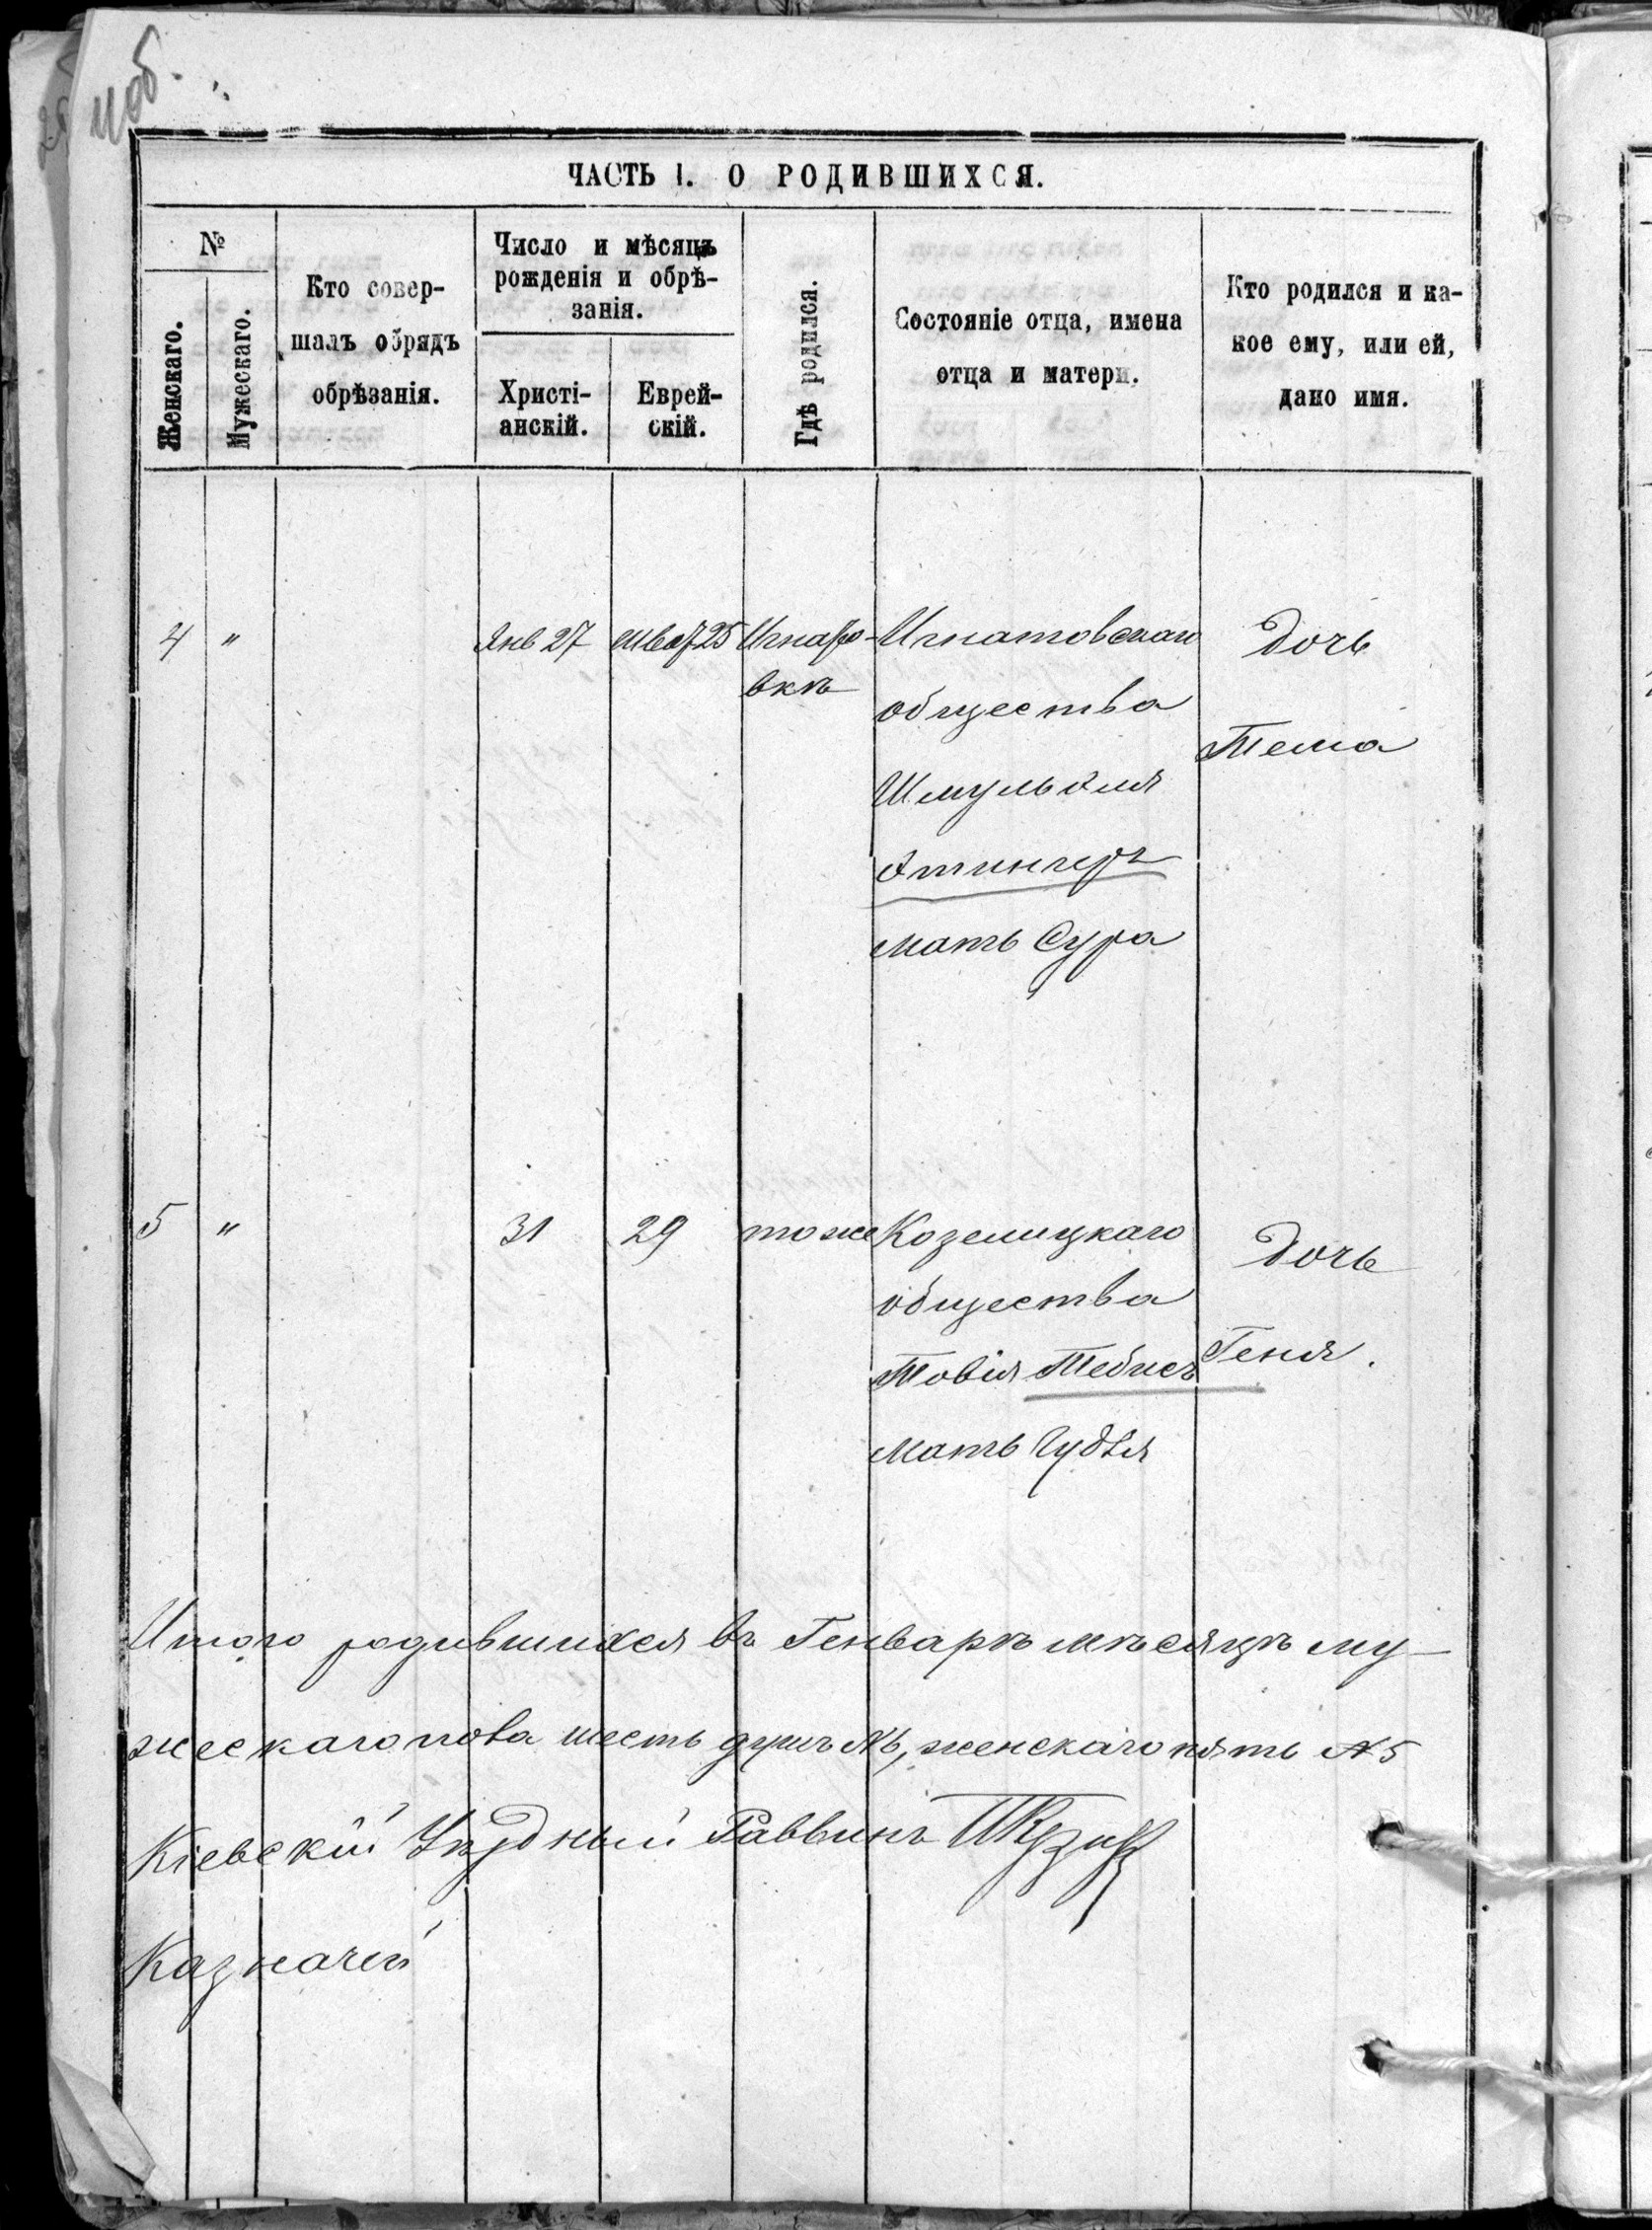 4об.
ЧАСТЬ I. О РОДИВШИХСЯ.
№
Женскаго.
Мужескаго.
Кто совер-
шалъ обрядъ
обрѣзанія.
Число и мѣсяцъ
рожденія и обрѣ-
занія.
Христі-
анскій.
Еврей-
скій.
Гдѣ родился.
Состояніе отца, имена
отца и матери.
Кто родился и ка-
кое ему, или ей,
дано имя.
4 " Янв 27 Шват 25 Игнато- Игнатовскаго Дочь
вкѣ
общества
Тема
Шмуль
Этингеръ
мать Сура
5 " 31 29 тоже Козелицкаго Дочь
общества
Товія Геня.
мать
Итого родившихся въ Генварѣ мѣсяцѣ му-
жескаго пола шесть душъ №6, женскаго пять №5
Кіевскій Уѣздный Раввинъ
Казначей